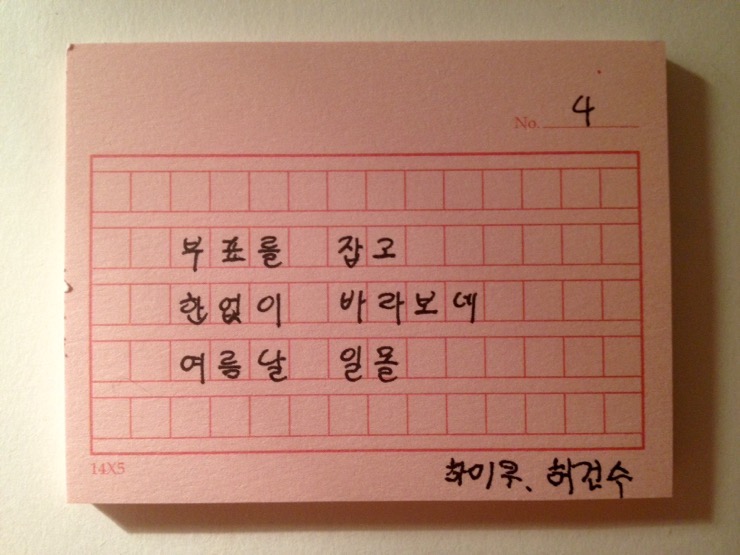 No. 4
부표를 잡고
한없이 바라보네
여름날 일몰
14X5
하이쿠. 허건수